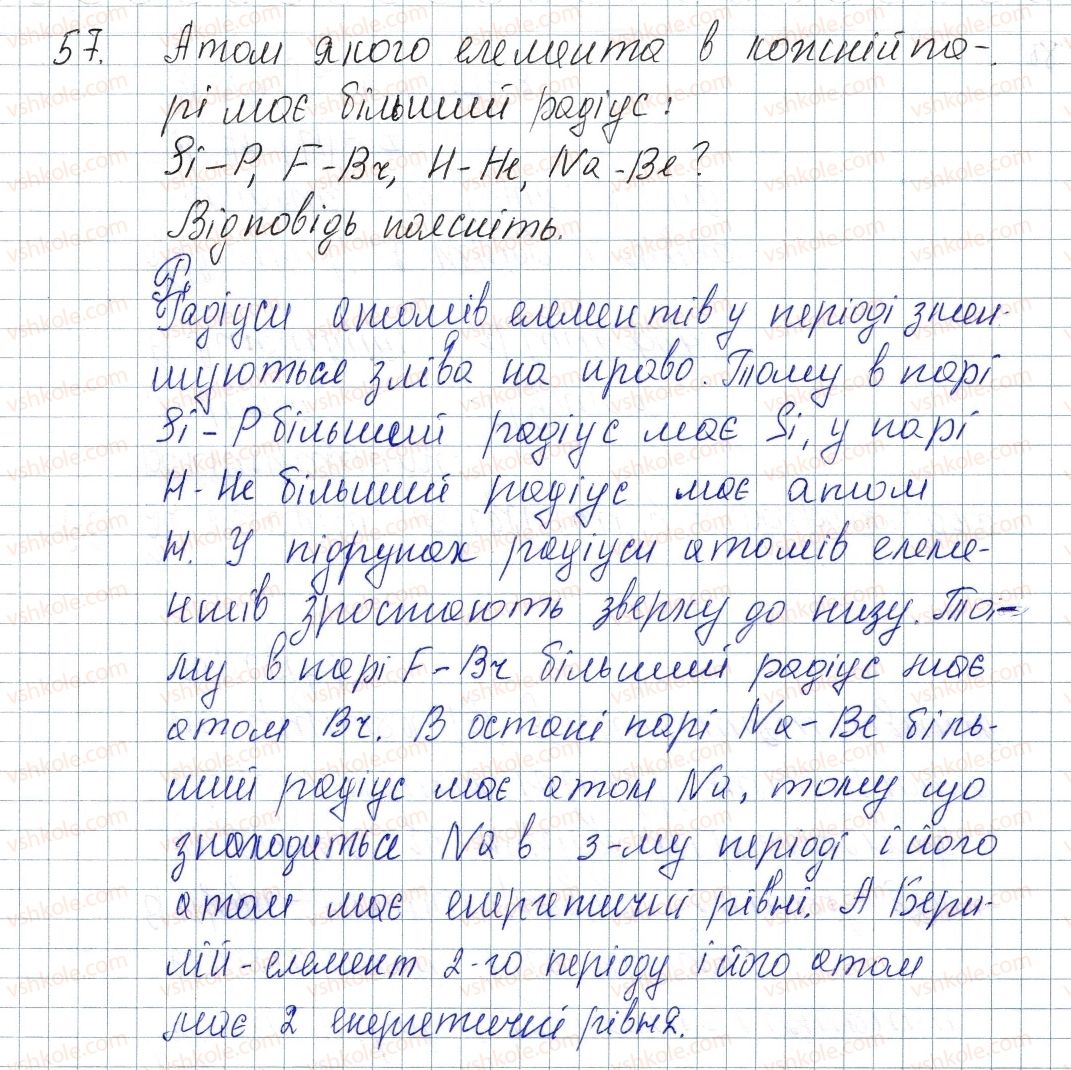 57. Атом якого елемента в кожній па-
рі має більший радіус:
Si-P, F-Br, H-He, Na-Be?
Відповідь поясніть.
Радіуси атомів елементів у періоді змен-
шуються зліва на право. Тому в парі
Si-P більший радіус має Si, у парі
H-He більший радіус має атом
H. У підрупах радіуси атомів елеме-
нтів зростають зверху до низу. То-
му в парі F-Br більший радіус має
атом Br. В остані парі Na-Be біль-
ший радіус має атом Na, тому що
знаходиться Na в 3-му періоді і його
атом має енергетичні рівні. А Бери-
лій-елемент 2-го періоду і його атом
має 2 енергетичні рівня.